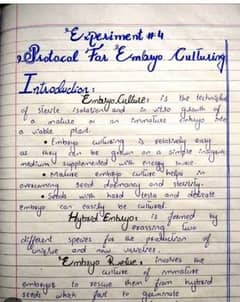 Experiment #4
Protocal For Embryo Culturing
Introduction:
Embryo Culture: is the technique
of sterile isolation and in vitro growth of
a mature or an immature embryo into
a viable plant.
• Embryo culturing is relatively easy
as they can be grown on a simple inorganic
medium supplemented with energy source.
• Mature embryo culture helps in
overcoming seed dormancy and sterility.
• Seeds with hard testa and delicate
embryo can easily be cultured.
Hybrid Embryo: is formed by
crossing two
different species for the production of
unique and new
Embryo Rescue: Involves the
culture of immature
embryos to rescue them from hybrid
seeds which fail to germinate